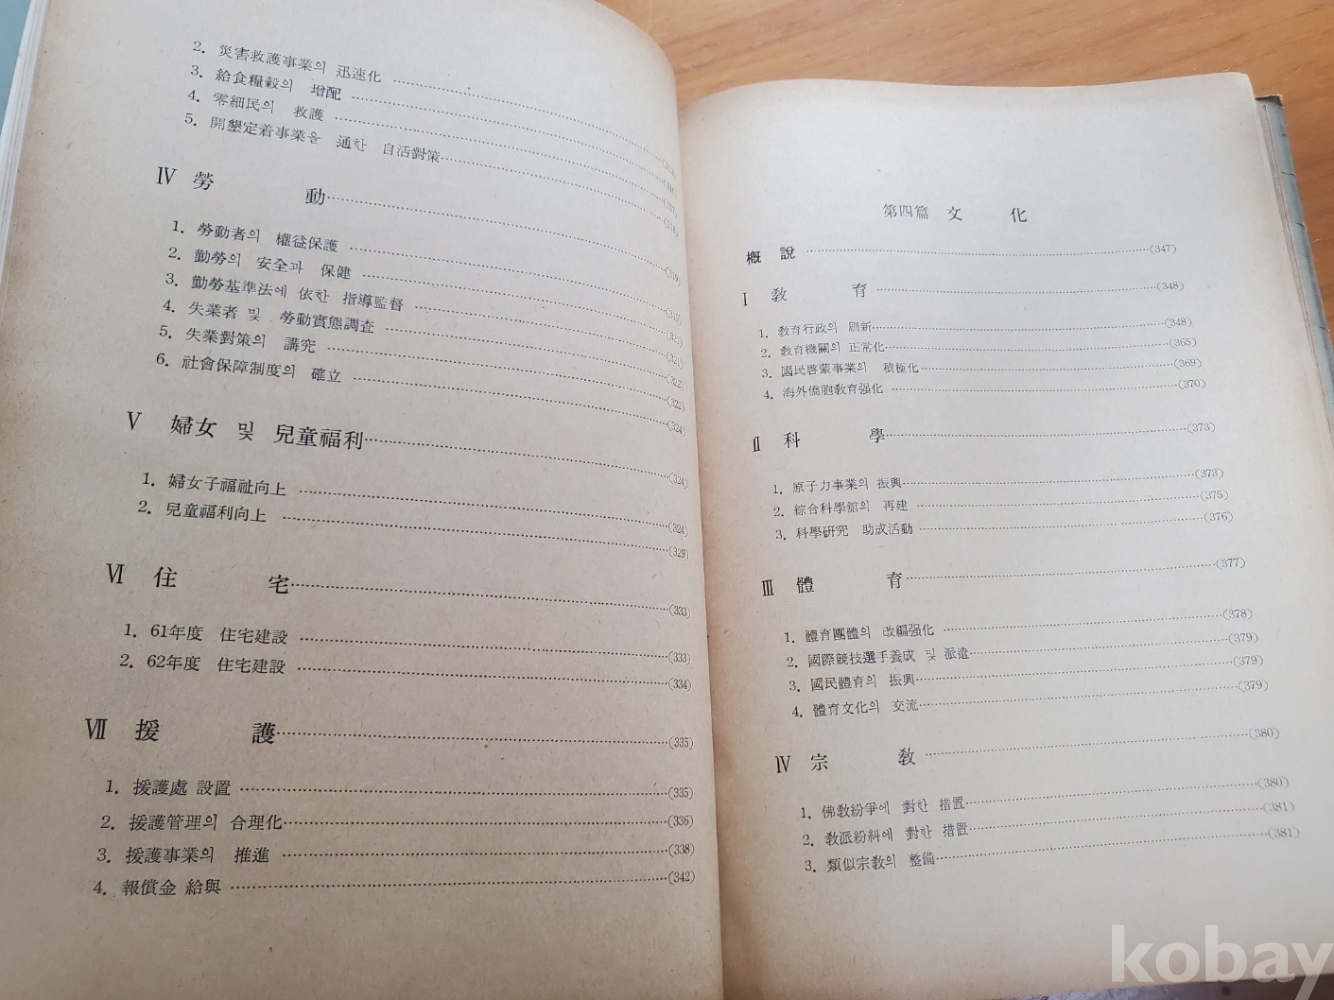 2. 災害救護事業의 迅速化
3. 給食糧穀의 增配
4. 零細民의 救護
5. 開墾定着事業을 通한 自活對策
Ⅳ 勞 動
1. 勞動者의 權益保護 (319)
2. 勤勞의 安全과 保健
3. 勤勞基準法에 依한 指導監督 (321)
4. 失業者 및 勞動實態調査 (321)
5. 失業對策의 講究 (322)
6. 社會保障制度의 確立
Ⅴ 婦女 및 兒童福利 (324)
1. 婦女子福祉向上 (324)
2. 兒童福利向上 (329)
Ⅵ 住 宅 (333)
1. 61年度 住宅建設 (333)
2. 62年度 住宅建設 (334)
Ⅶ 援 護 (335)
1. 援護處 設置 (335)
2. 援護管理의 合理化 (336)
3. 援護事業의 推進 (338)
4. 報償金 給與 (342)
第四篇 文 化
槪 說 (347)
Ⅰ 敎 育 (348)
1. 敎育行政의 刷新 (348)
2. 敎育機關의 正常化 (365)
3. 國民啓蒙事業의 積極化 (369)
4. 海外僑胞敎育强化 (370)
Ⅱ 科 學 (373)
1. 原子力事業의 振興 (373)
2. 綜合科學舘의 再建 (375)
3. 科學硏究 助成活動 (376)
Ⅲ 體 育 (377)
1. 體育團體의 改編强化 (378)
2. 國際競技選手養成 및 派遣 (379)
3. 國民體育의 振興 (379)
4. 體育文化의 交流 (379)
Ⅳ 宗 敎 (380)
1. 佛敎紛爭에 對한 措置 (380)
2. 敎派紛糾에 對한 措置 (381)
3. 類似宗敎의 整備 (381)
kobay